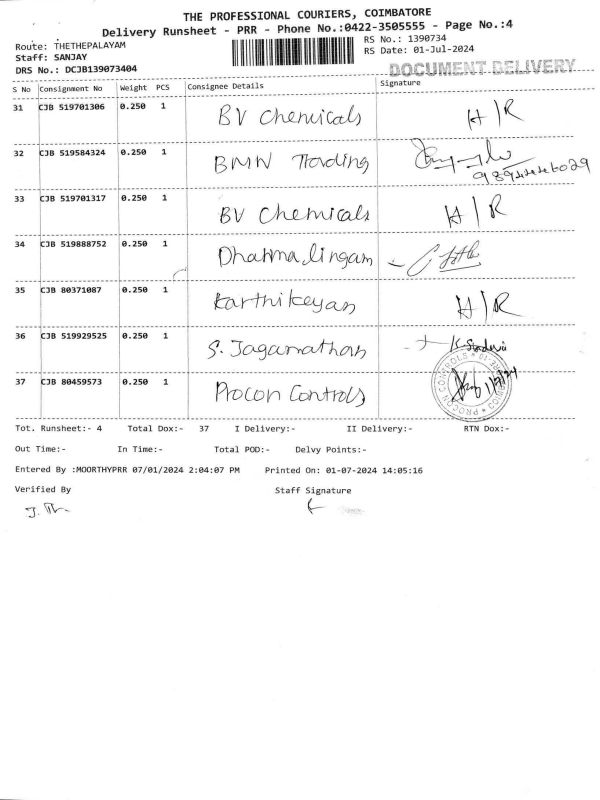 THE PROFESSIONAL COURIERS, COIMBATORE
Delivery Runsheet - PRR - Phone No.:0422-3505555 - Page No.:4
Route: THETHEPALAYAM RS No.: 1390734
Staff: SANJAY RS Date: 01-Jul-2024
DRS No.: DCJB139073404 DOCUMENT DELIVERY
S No Consignment No Weight PCS Consignee Details Signature
31 CJB 519701306 0.250 1 BV Chemicals H/R
32 CJB 519584324 0.250 1 BMW Trading
33 CJB 519701317 0.250 1 BV Chemicals H/R
34 CJB 519888752 0.250 1 Dharmalingam
35 CJB 80371087 0.250 1 Karthikeyan H/R
36 CJB 519929525 0.250 1 S. Jagannathan
37 CJB 80459573 0.250 1 Procon Controls PROCON CONTROLS 1/7/24
Tot. Runsheet:- 4 Total Dox:- 37 I Delivery:- II Delivery:- RTN Dox:-
Out Time:- In Time:- Total POD:- Delvy Points:-
Entered By :MOORTHYPRR 07/01/2024 2:04:07 PM Printed On: 01-07-2024 14:05:16
Verified By Staff Signature